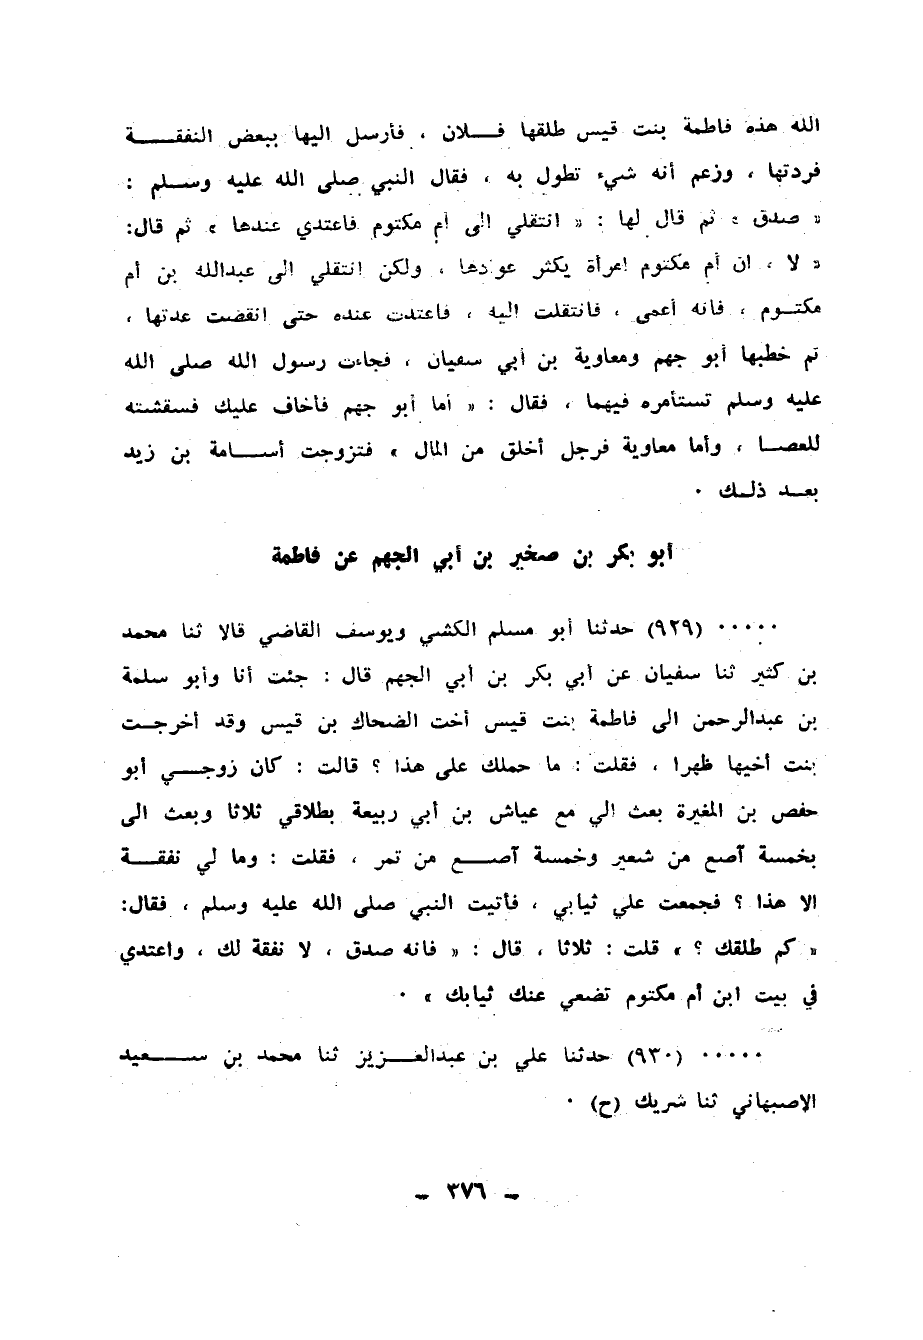 الله هذه فاطمة بنت قيس طلقها فـــلان ، فأرسل اليها ببعض النفقـــة
فردتها ، وزعم أنه شيء تطول به ، فقال النبي صلى الله عليه وسـلم :
« صدق » ثم قال لها : « انتقلي الى أم مكتوم فاعتدي عندها » ثم قال:
« لا ، ان أم مكتوم امرأة يكثر عوادها ، ولكن انتقلي الى عبدالله بن أم
مكتـوم ، فانه أعمى ، فانتقلت اليه ، فاعتدت عنده حتى انقضت عدتها ،
ثم خطبها أبو جهم ومعاوية بن أبي سفيان ، فجاءت رسول الله صلى الله
عليه وسلم تستأمره فيهما ، فقال : « أما أبو جهم فأخاف عليك فسقشته
للعصـا ، وأما معاوية فرجل أخلق من المال » فتزوجت أسـامة بن زيد
بعـد ذلـك ٠
أبو بكر بن صخير بن أبي الجهم عن فاطمة
٠٠٠٠٠ (٩٢٩) حدثنا أبو مسلم الكشي ويوسف القاضي قالا ثنا محمد
بن كثير ثنا سفيان عن أبي بكر بن أبي الجهم قال : جئت أنا وأبو سلمة
بن عبدالرحمن الى فاطمة بنت قيس أخت الضحاك بن قيس وقد أخرجـت
بنت أخيها ظهرا ، فقلت : ما حملك على هذا ؟ قالت : كان زوجـي أبو
حفص بن المغيرة بعث الي مع عياش بن أبي ربيعة بطلاقي ثلاثا وبعث الى
بخمسة آصع من شعير وخمسة آصـــع من تمر ، فقلت : وما لي نفقـــة
الا هذا ؟ فجمعت علي ثيابي ، فأتيت النبي صلى الله عليه وسلم ، فقال:
« كم طلقك ؟ » قلت : ثلاثا ، قال : « فانه صدق ، لا نفقة لك ، واعتدي
في بيت ابن أم مكتوم تضعي عنك ثيابك » ٠
٠٠٠٠٠ (٩٣٠) حدثنا علي بن عبدالعـــزيز ثنا محمد بن ســـعيد
الاصبهاني ثنا شريك (ح) ٠
ـ ٣٧٦ ـ